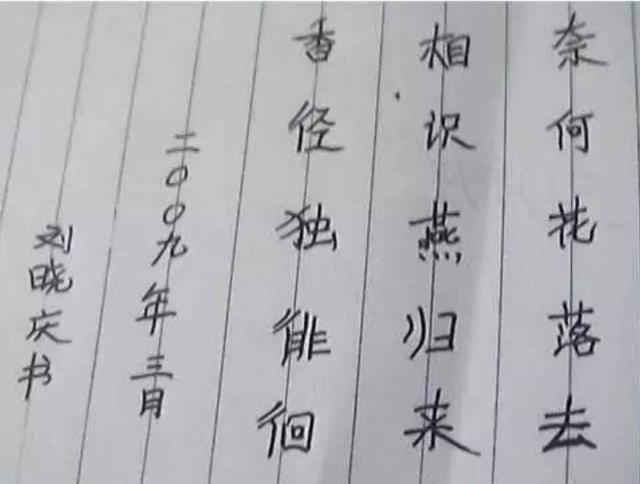 奈何花落去
相识燕归来
香径独徘徊
二〇〇九年三月
刘晓庆书